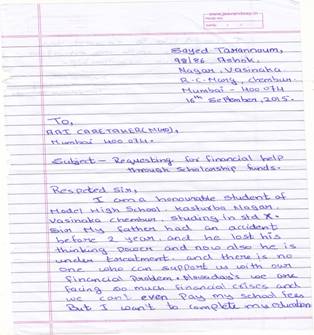 Sayed Tarannoum,
98/86 Ashok
Nagar, Vasinaka
R.C. Marg, chembur.
Mumbai - 400 074
16th September, 2015.
To,
Mumbai 400 074.
Subject - Requesting for financial help
through scholarship funds.
Respeted Sir,
I am a honourable student of
Model High School. Kasturba Nagar.
Vasinaka chembur. Studing in std X.
My father had an accident
before 2 year. and he lost his
thinking power and now also he is
under treatment. and there is no
one who can support us with our
financial problem. Nowaday's we are
facing so much financial crises and
we can't even pay my school fees
But I want to complete my education